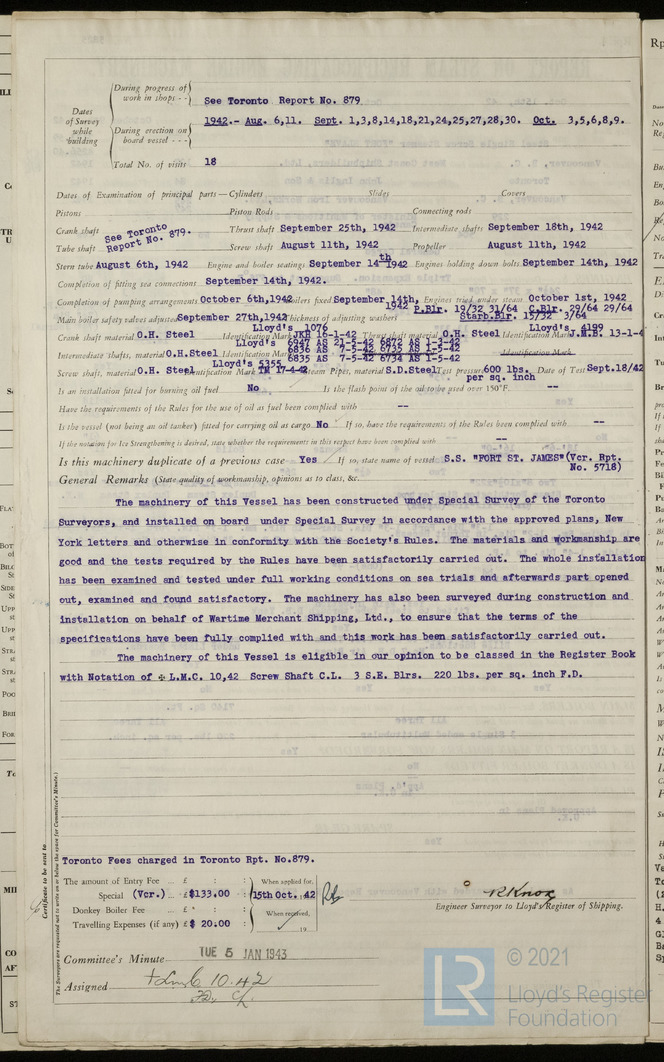 During progress of
work in shops - - See Toronto Report No. 879
Dates
of Survey
while
building
During erection on
board vessel - - - 1942.- Aug. 6,11. Sept. 1,3,8,14,18,21,24,25,27,28,30. Oct. 3,5,6,8,9.
Total No. of visits 18
Dates of Examination of principal parts—Cylinders Slides Covers
Pistons Piston Rods Connecting rods
Crank shaft See Toronto Report No. 879. Thrust shaft September 25th, 1942 Intermediate shafts September 18th, 1942
Tube shaft Screw shaft August 11th, 1942 Propeller August 11th, 1942
Stern tube August 6th, 1942 Engine and boiler seatings September 14th 1942 Engines holding down bolts September 14th, 1942
Completion of fitting sea connections September 14th, 1942.
Completion of pumping arrangements October 6th,1942 Boilers fixed September 14th, 1942 Engines tried under steam October 1st, 1942
Main boiler safety valves adjusted September 27th,1942 Thickness of adjusting washers P.Blr. 19/32 31/64 C.Blr. 29/64 29/64
Starb.Blr. 15/32 3/64
Crank shaft material O.H. Steel Identification Mark Lloyd's 1076 JKR 16-1-42 Thrust shaft material O.H. Steel Identification Mark Lloyd's 4199 J.M.B. 13-1-4
Intermediate shafts, material O.H.Steel Lloyd's 6947 AS 21-5-42 6872 AS 1-3-42
6836 AS 7-5-42 6735 AS 1-5-42 Identification Mark
6835 AS 7-5-42 6734 AS 1-5-42
Screw shaft, material O.H. Steel Identification Mark Lloyd's 5355 TM 17-4-42 Steam Pipes, material S.D.Steel Test pressure 600 lbs. per sq. inch Date of Test Sept.18/42
Is an installation fitted for burning oil fuel No Is the flash point of the oil to be used over 150°F. --
Have the requirements of the Rules for the use of oil as fuel been complied with --
Is the vessel (not being an oil tanker) fitted for carrying oil as cargo No If so, have the requirements of the Rules been complied with --
If the notation for Ice Strengthening is desired, state whether the requirements in this respect have been complied with --
Is this machinery duplicate of a previous case Yes If so, state name of vessel S.S. "FORT ST. JAMES"(Vcr. Rpt.
No. 5718)
General Remarks (State quality of workmanship, opinions as to class, &c.
The machinery of this Vessel has been constructed under Special Survey of the Toronto
Surveyors, and installed on board under Special Survey in accordance with the approved plans, New
York letters and otherwise in conformity with the Society's Rules. The materials and workmanship are
good and the tests required by the Rules have been satisfactorily carried out. The whole installation
has been examined and tested under full working conditions on sea trials and afterwards part opened
out, examined and found satisfactory. The machinery has also been surveyed during construction and
installation on behalf of Wartime Merchant Shipping, Ltd., to ensure that the terms of the
specifications have been fully complied with and this work has been satisfactorily carried out.
The machinery of this Vessel is eligible in our opinion to be classed in the Register Book
with Notation of ✠ L.M.C. 10,42 Screw Shaft C.L. 3 S.E. Blrs. 220 lbs. per sq. inch F.D.
Certificate to be sent to
The Surveyors are requested not to write on or below the space for Committee's Minute.
Toronto Fees charged in Toronto Rpt. No.879.
The amount of Entry Fee .. £ : : When applied for,
Special (Vcr.) ... £ $133.00 15th Oct. 42
Donkey Boiler Fee ... £ : : When received,
Travelling Expenses (if any) £ $ 20.00 19
R Knox
Engineer Surveyor to Lloyd's Register of Shipping.
Committee's Minute TUE 5 JAN 1943
Assigned + L.M.C. 10.42
F.D. CL.
LR
© 2021
Lloyd's Register
Foundation